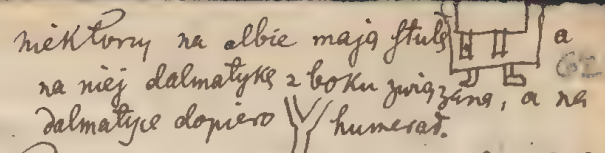 niektorzy na albie mają stułę a
na niej dalmatykę z boku związaną, a na
dalmatyce dopiero humerał.